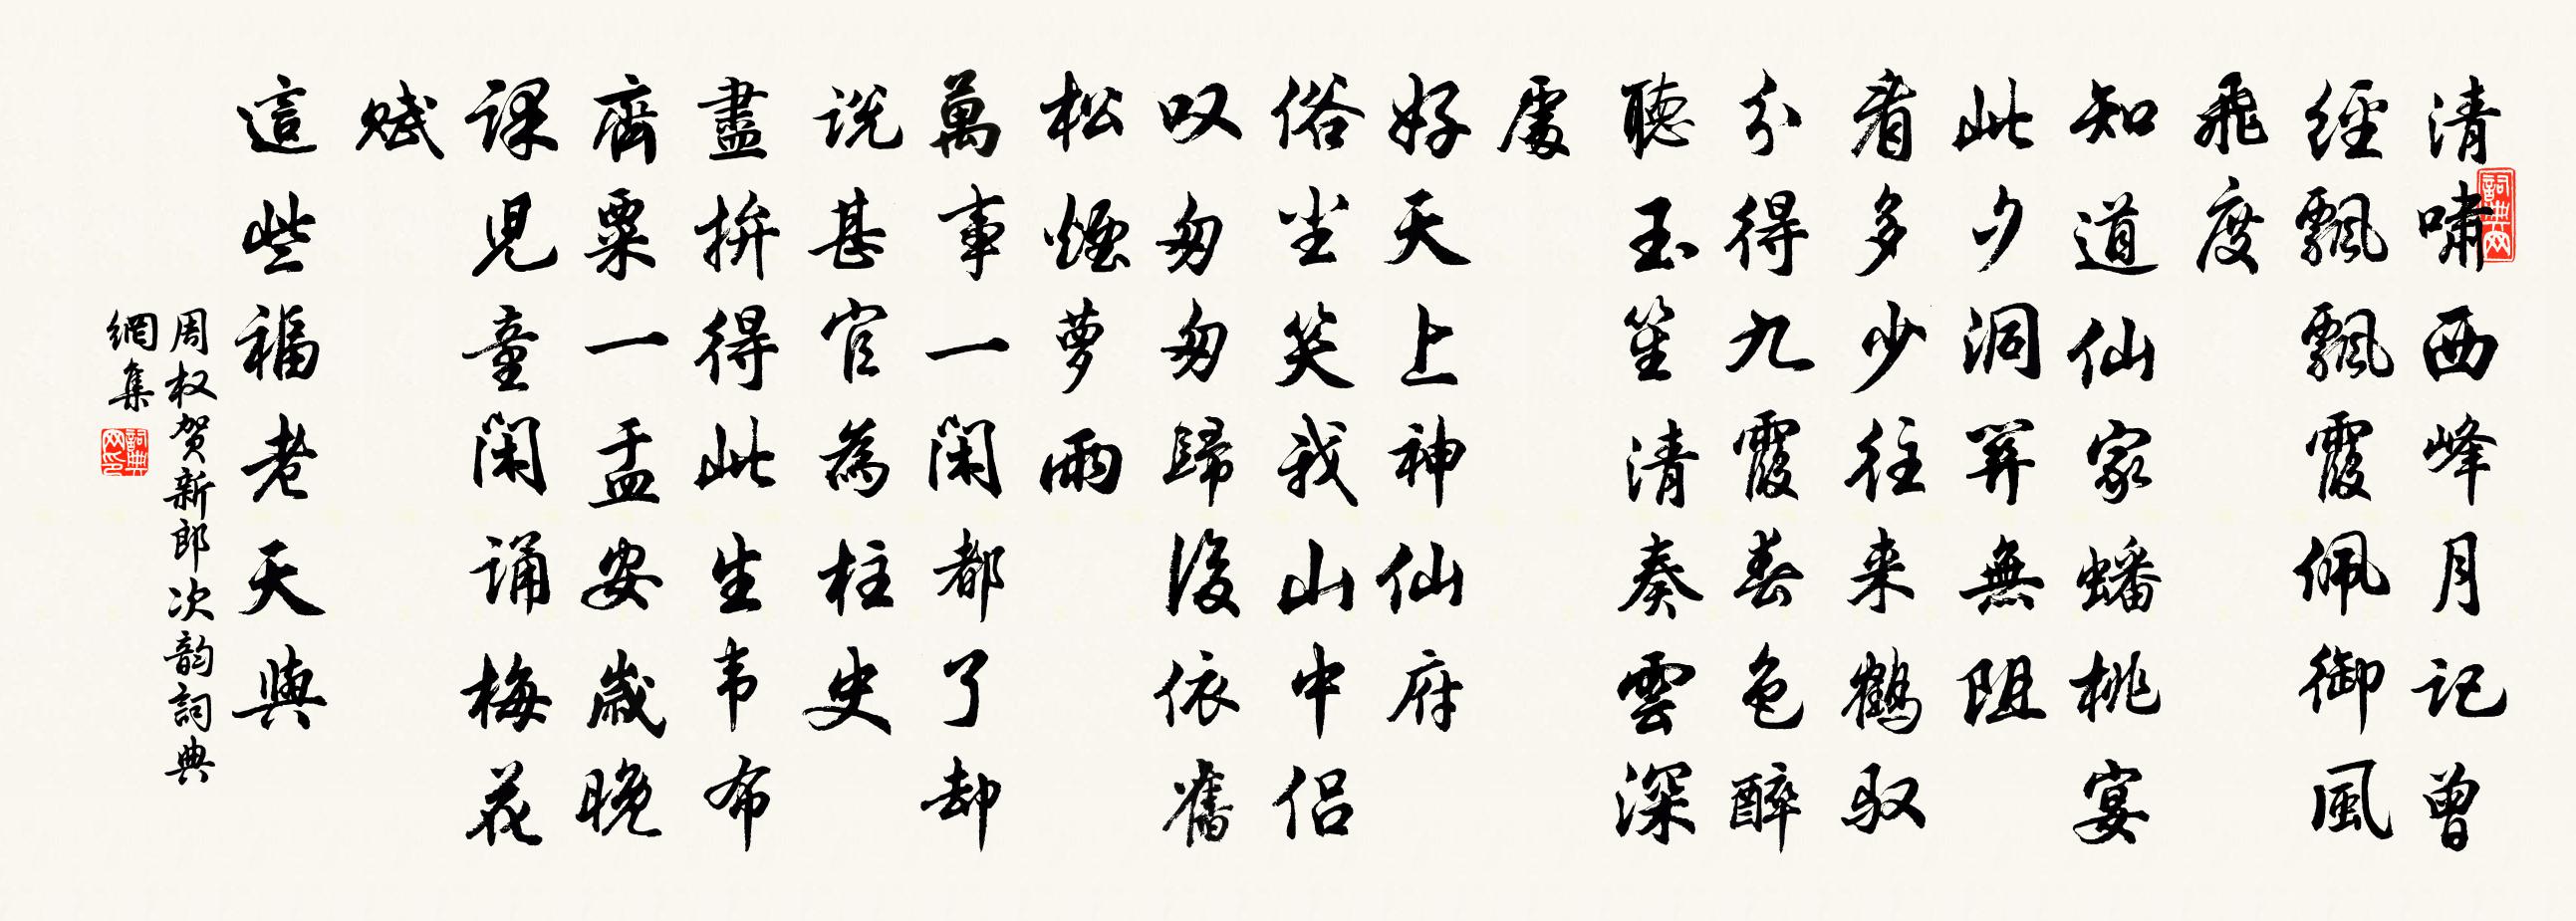 清嘯西峰月記曾
經飄飄霞佩御風
飛度
知道仙家蟠桃宴
此夕洞開無阻
看多少往来鶴驭
分得九霞春色醉
聽玉笙清奏雲深
處
好天上神仙府
俗尘笑我山中侶
叹匆匆歸後依舊
松煙萝雨
萬事一閑都了却
説甚官為柱史
盡拚得此生韦布
齊粟一盂安歲晚
課兒童閑誦梅花
賦
這些福老天與
周权贺新郎次韵詞典
網集
詞典网
詞典网印